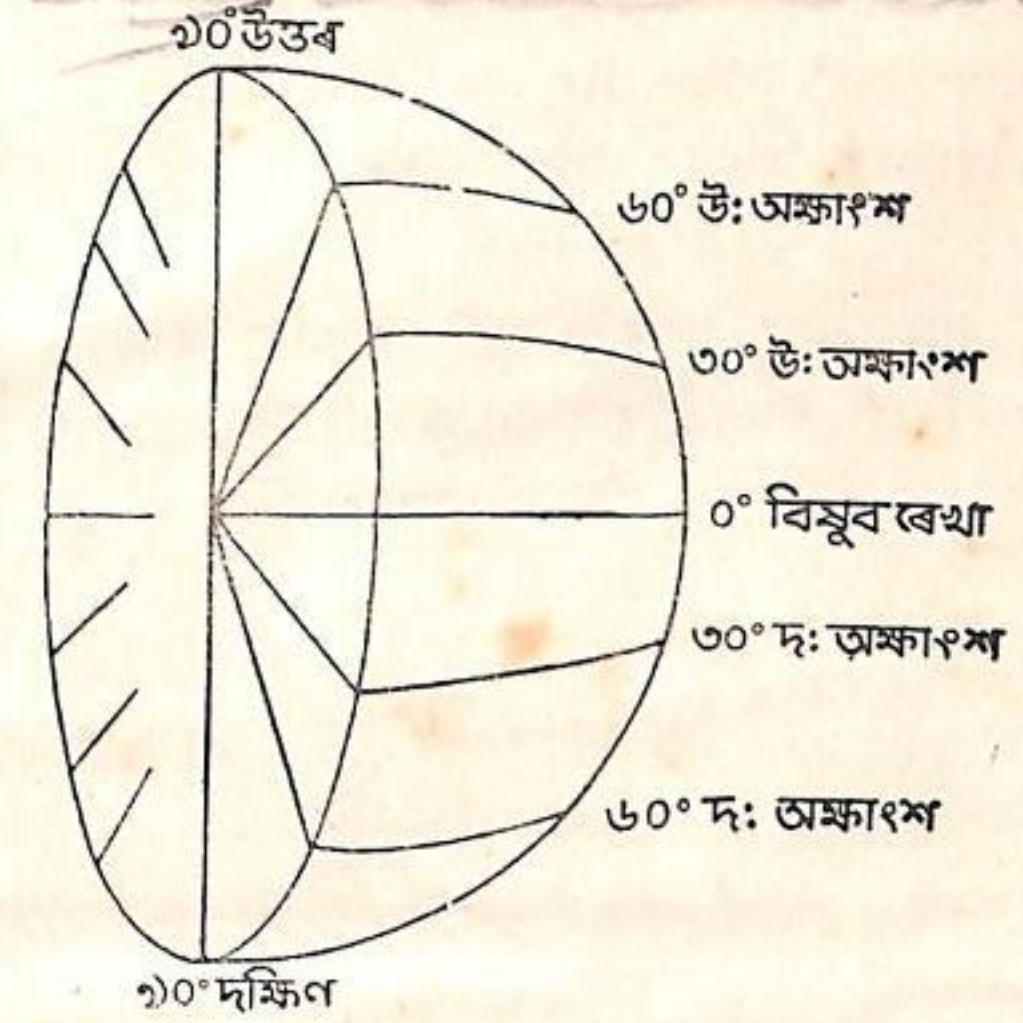 ৯০° উত্তৰ
৬০° উ: অক্ষাংশ
৩০° উ: অক্ষাংশ
০° বিষুব ৰেখা
৩০° দ: অক্ষাংশ
৬০° দ: অক্ষাংশ
৯০° দক্ষিণ